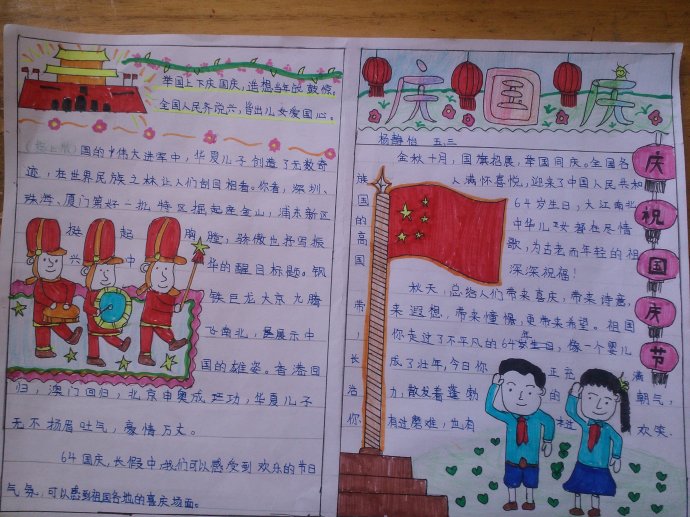 举国上下庆国庆，遥想当年战鼓惊，
全国人民齐说兴，皆出儿女爱国心。
国的中伟大进军中，华夏儿子创造了无数奇
迹，在世界民族之林让人们刮目相看。你看，深圳、
珠海、厦门第好一批特区掘起座金山，浦东新区
挺起胸脸，骄傲也抒写振
兴中华的醒目标题。钢
铁巨龙大京九腾
飞南北，是展示中
国的雄姿。香港回
归，澳门回归，北京申奥成功，华夏儿子
无不扬眉吐气，豪情万丈。
64国庆，长假中，我们可以感受到欢乐的节日
气氛，可以感到祖国各地的喜庆场面。
庆国庆
杨静怡 五.三
金秋十月，国旗招展，举国同庆。全国各
族人满怀喜悦，迎来了中国人民共和
国的64岁生日，大江南北
高中华儿女都在尽情
国歌，为古老而年轻的祖
深深祝福！
秋天，总给人们带来喜庆，带来诗意，
带来遐想，带来憧憬，更带来希望。祖国
，你走过了不平凡的64年岁生日，像一个婴儿
长成了壮年，今日你正充满
浩力，散发着蓬勃的朝气，
你有过磨难，也有过欢笑.
庆祝国庆节